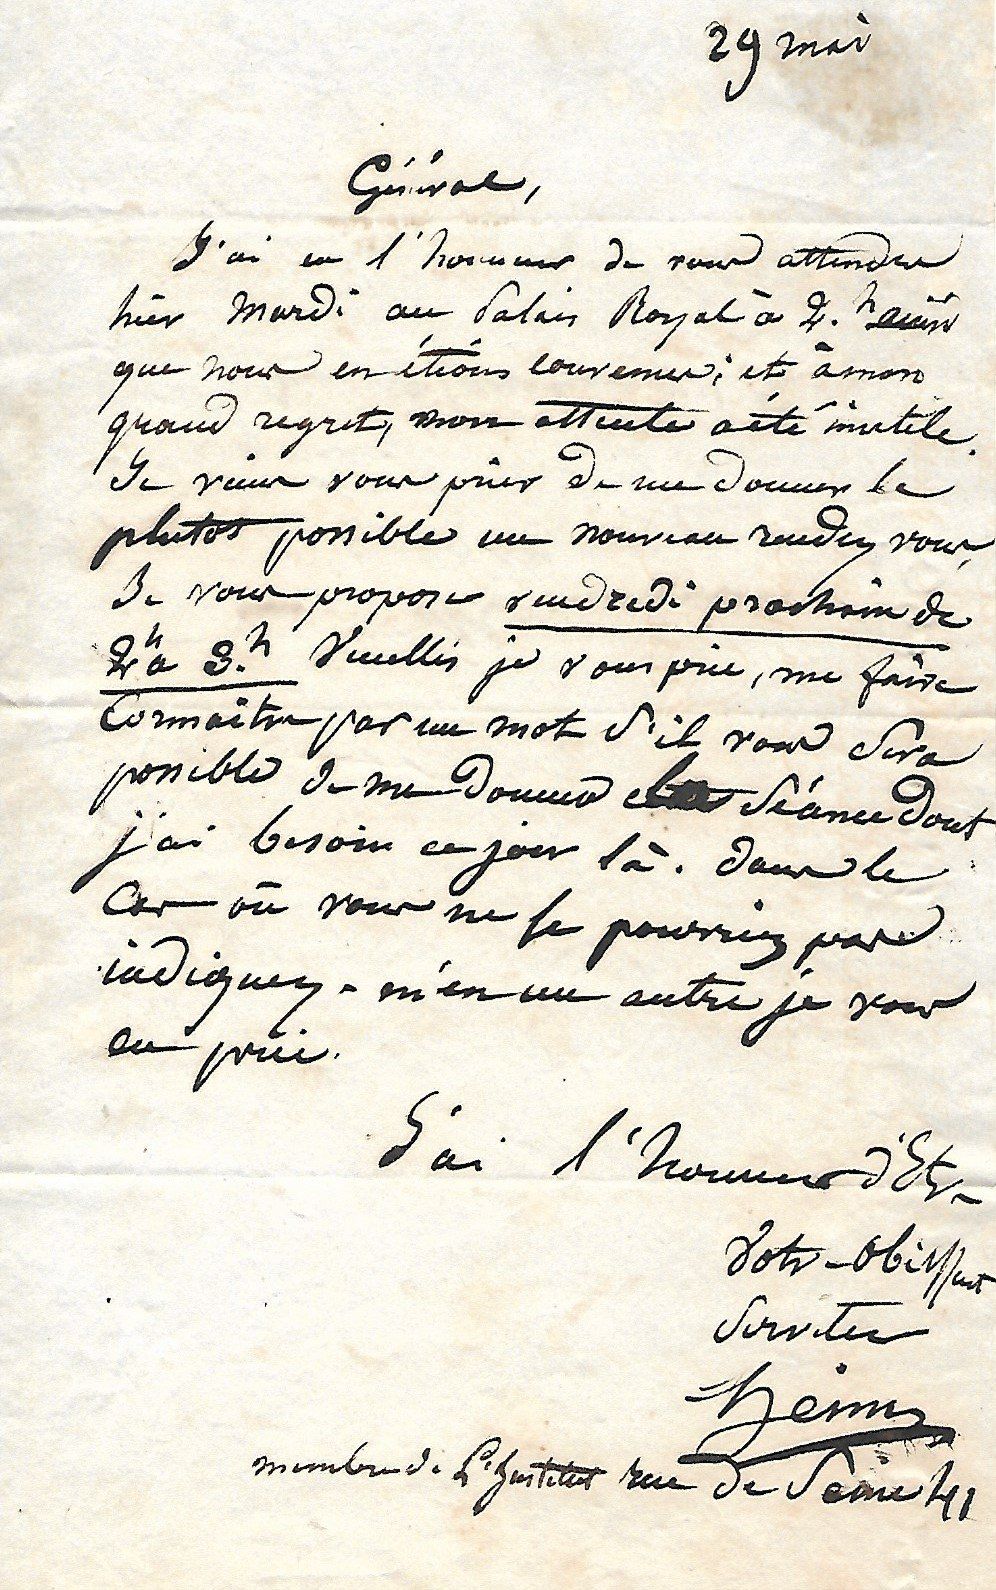 29 mai
Général,
J'ai eu l'honneur de vous attendre
hier Mardi au Palais Royal à 2.h ainsi
que nous en étions convenus; et à mon
grand regret, mon attente a été inutile.
Je viens vous prier de me donner le
plutot possible un nouveau rendez vous,
Je vous propose vendredi prochain de
2h a 3.h Veuillés je vous prie, me faire
Connaitre par un mot S'il vous Sera
possible de me donner Séance dont
j'ai besoin ce jour là. dans le
Cas où vous ne le pourriez pas
indiquez-m'en un autre je vous
en prie.
J'ai l'honneur d'Etre
Votre Obéissant
Serviteur
membre de L'Institut rue de Seine 41